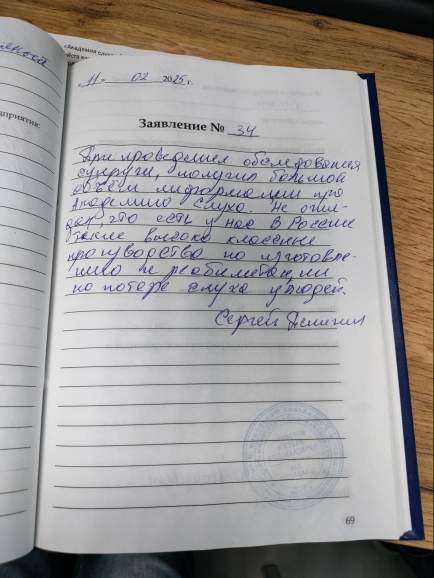 «Академия слу
11. 02 2025 г.
Заявление № 34
При проведении обследования
супруги, получил большой
объём информации про
Академию Слуха. Не ожи-
дал, что есть у нас в России
такие высоко классные
производства по изготовле-
нию и реабилитации
по потере слуха у людей.
Сергей
69